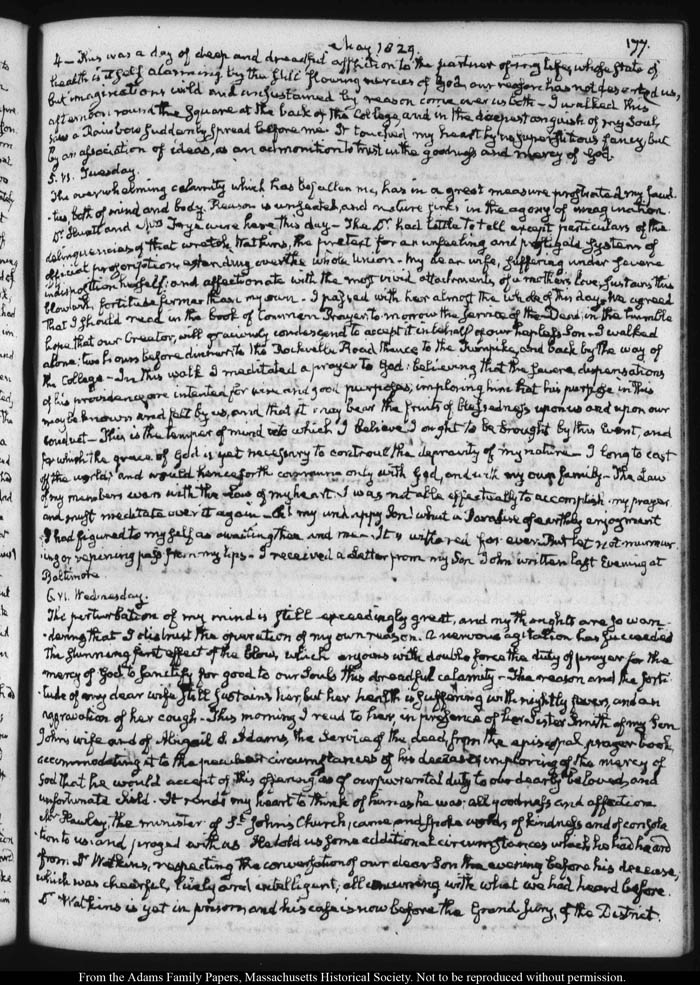 May 1829.
177.
4 – This was a day of deep and dreadful affliction to the partner of my life, whose state of
health is itself alarming. By the still flowing mercies of God, our reason has not deserted us,
but imaginations wild and unsustained by reason come over us both – I walked this
afternoon round the Square at the back of the College, and in the deepest anguish of my Soul,
saw a Rainbow suddenly spread before me. It touched my heart by no superstitious fancy, but
by an association of ideas, as an admonition to trust in the goodness and mercy of God.
5. VI. Tuesday.
The overwhelming calamity which has befallen me, has in a great measure prostrated my facul-
-ties, both of mind and body. Reason is unseated, and nature sinks in the agony of imagination.
Dr. Huntt and Mrs Frye were here this day – The Dr. had little to tell except particulars of the
delinquencies of that wretch Watkins, the pretext for an unfeeling and profligate System of
official proscription extending over the whole Union – My dear wife, suffering under severe
indisposition himself; and affectionate with the most vivid attachments of a mother's love, sustains this
blow with fortitude firmer than my own – I passed with her almost the whole of this day. We agreed
that I should read in the book of Common Prayer to-morrow the Service of the Dead, in the humble
hope that our Creator, will graciously condescend to accept it in behalf of our hapless Son – I walked
alone; two hours before dinner to the Rockville Road thence to the Turnpike, and back by the way of
the College – In this walk I meditated a prayer to God: believing that the severe dispensations
of his providence are intended for wise and good purposes; imploring him that his purpose in this
may be known and felt by us, and that it may bear the fruits of blessedness upon us and upon our
conduct – This is the temper of mind into which I believe I ought to be brought by this Event, and
for which the grace of God is yet necessary to controul the depravity of my nature – I long to cast
off the world, and would henceforth commune only with God, and with my own family – The Law
of my members wars with the Law of my heart. I was not able effectually to accomplish my prayer
and must meditate over it again – Oh! my unhappy Son! what a Paradise of earthly enjoyment
I had figured to myself as awaiting thee and me – It is withered for ever. But let not murmur-
-ing or repining pass from my lips – I received a Letter from my Son John written last Evening at
Baltimore
6. VI. Wednesday.
The perturbation of my mind is still exceedingly great, and my thoughts are so wan-
-dering that I distrust the operation of my own reason. A nervous agitation has succeeded
the stunning first effect of the blow, which enjoins with double force the duty of prayer for the
mercy of God to sanctify for good to our Souls this dreadful calamity – The reason and the forti-
tude of my dear wife still sustains her, but her health is suffering with nightly fevers, and an
aggravation of her cough – This morning I read to her, in presence of her Sister Smith of my Son
John's wife and of Abigail S. Adams, the Service of the dead, from the episcopal prayer book,
accommodating it to the peculiar circumstances of his decease, imploring of the mercy of
God that he would accept of this offering as of our parental duty to our dearly beloved, and
unfortunate child. It rends my heart to think of him as he was; all goodness and affection
Mr. Hawley, the minister of St. John's Church, came and spoke words of kindness and of consola
-tion to us: and prayed with us He told us some additional circumstances which he had heard
from Dr Watkins, respecting the conversation of our dear Son the evening before his decease;
which was cheerful, lively and intelligent, all concurring with what we had heard before.
Dr Watkins is yet in prison, and his case is now before the Grand Jury, of the District.
From the Adams Family Papers, Massachusetts Historical Society. Not to be reproduced without permission.